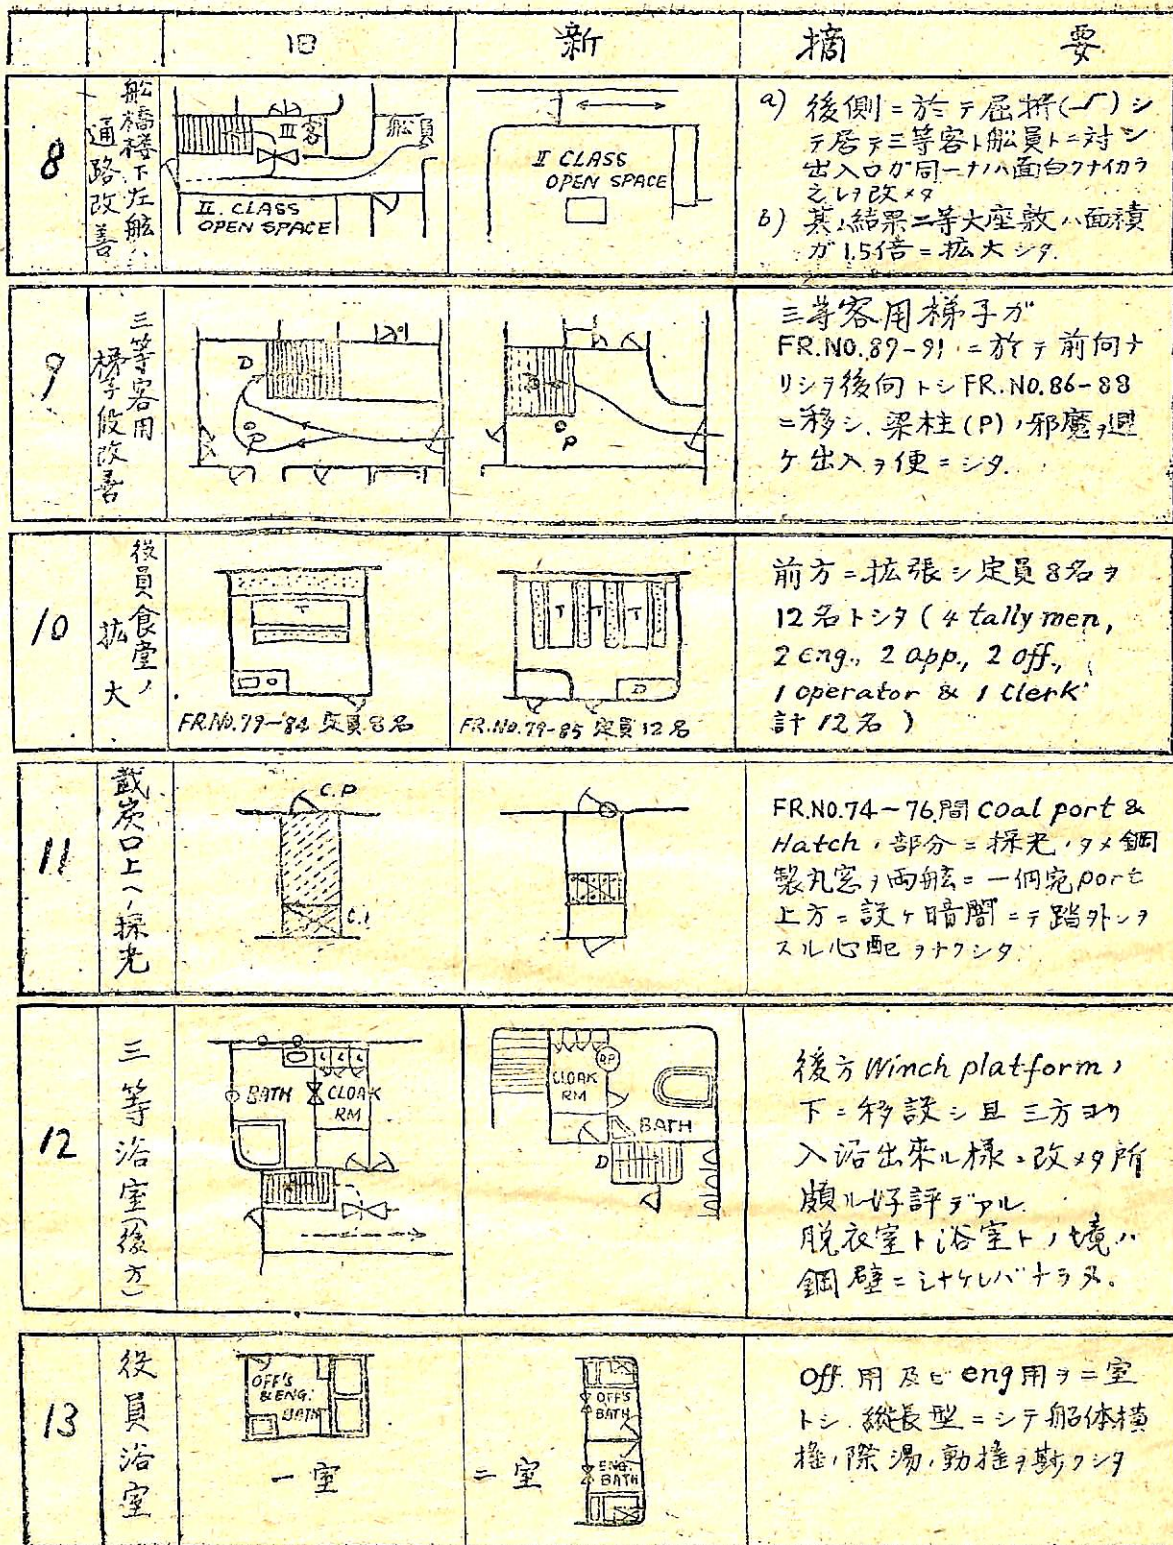 旧 新 摘 要
8
船橋楼下左舷ノ
通路改善
III客
船員
II. CLASS
OPEN SPACE
II CLASS
OPEN SPACE
a) 後側ニ於テ屈折()シ
テ居テ三等客ト船員トニ対シ
出入口ガ同一ナノハ面白クナイカラ
之レヲ改メタ
b) 其ノ結果二等大座敷ハ面積
ガ1.5倍ニ拡大シタ.
9
三等客用
梯子段改善
D
P
D
P
三等客用梯子ガ
FR.NO.89-91ニ於テ前向ナ
リシヲ後向トシFR.NO.86-88
ニ移シ、梁柱(P)ノ邪魔ヲ避
ケ出入ヲ便ニシタ.
10
役員食堂ノ
拡大
T
FR.NO.79-84 定員8名
T T T
D
FR.NO.79-85 定員12名
前方ニ拡張シ定員8名ヲ
12名トシタ(4 tally men,
2 eng., 2 app., 2 off.,
1 operator & 1 clerk
計12名)
11
載炭口上ヘノ採光
C.P
FR.NO.74~76間 Coal port &
Hatchノ部分ニ採光ノタメ鋼
製丸窓ヲ両舷ニ一個宛port
上方ニ設ケ暗闇ニテ踏外シヲ
スル心配ヲナクシタ.
12
三等浴室(後方)
L L L
BATH
CLOAK
RM
CLOAK
RM
BATH
D
後方Winch platformノ
下ニ移設シ且三方ヨリ
入浴出来ル様ニ改メタ所
頗ル好評デアル.
脱衣室ト浴室トノ境ハ
鋼壁ニシナケレバナラヌ.
13
役員浴室
OFF'S
& ENG.
BATH
一室
OFF'S
BATH
ENG.
BATH
二室
Off.用及ビeng用ヲ二室
トシ、縦長型ニシテ船体横
揺ノ際湯ノ動揺ヲ尠クシタ